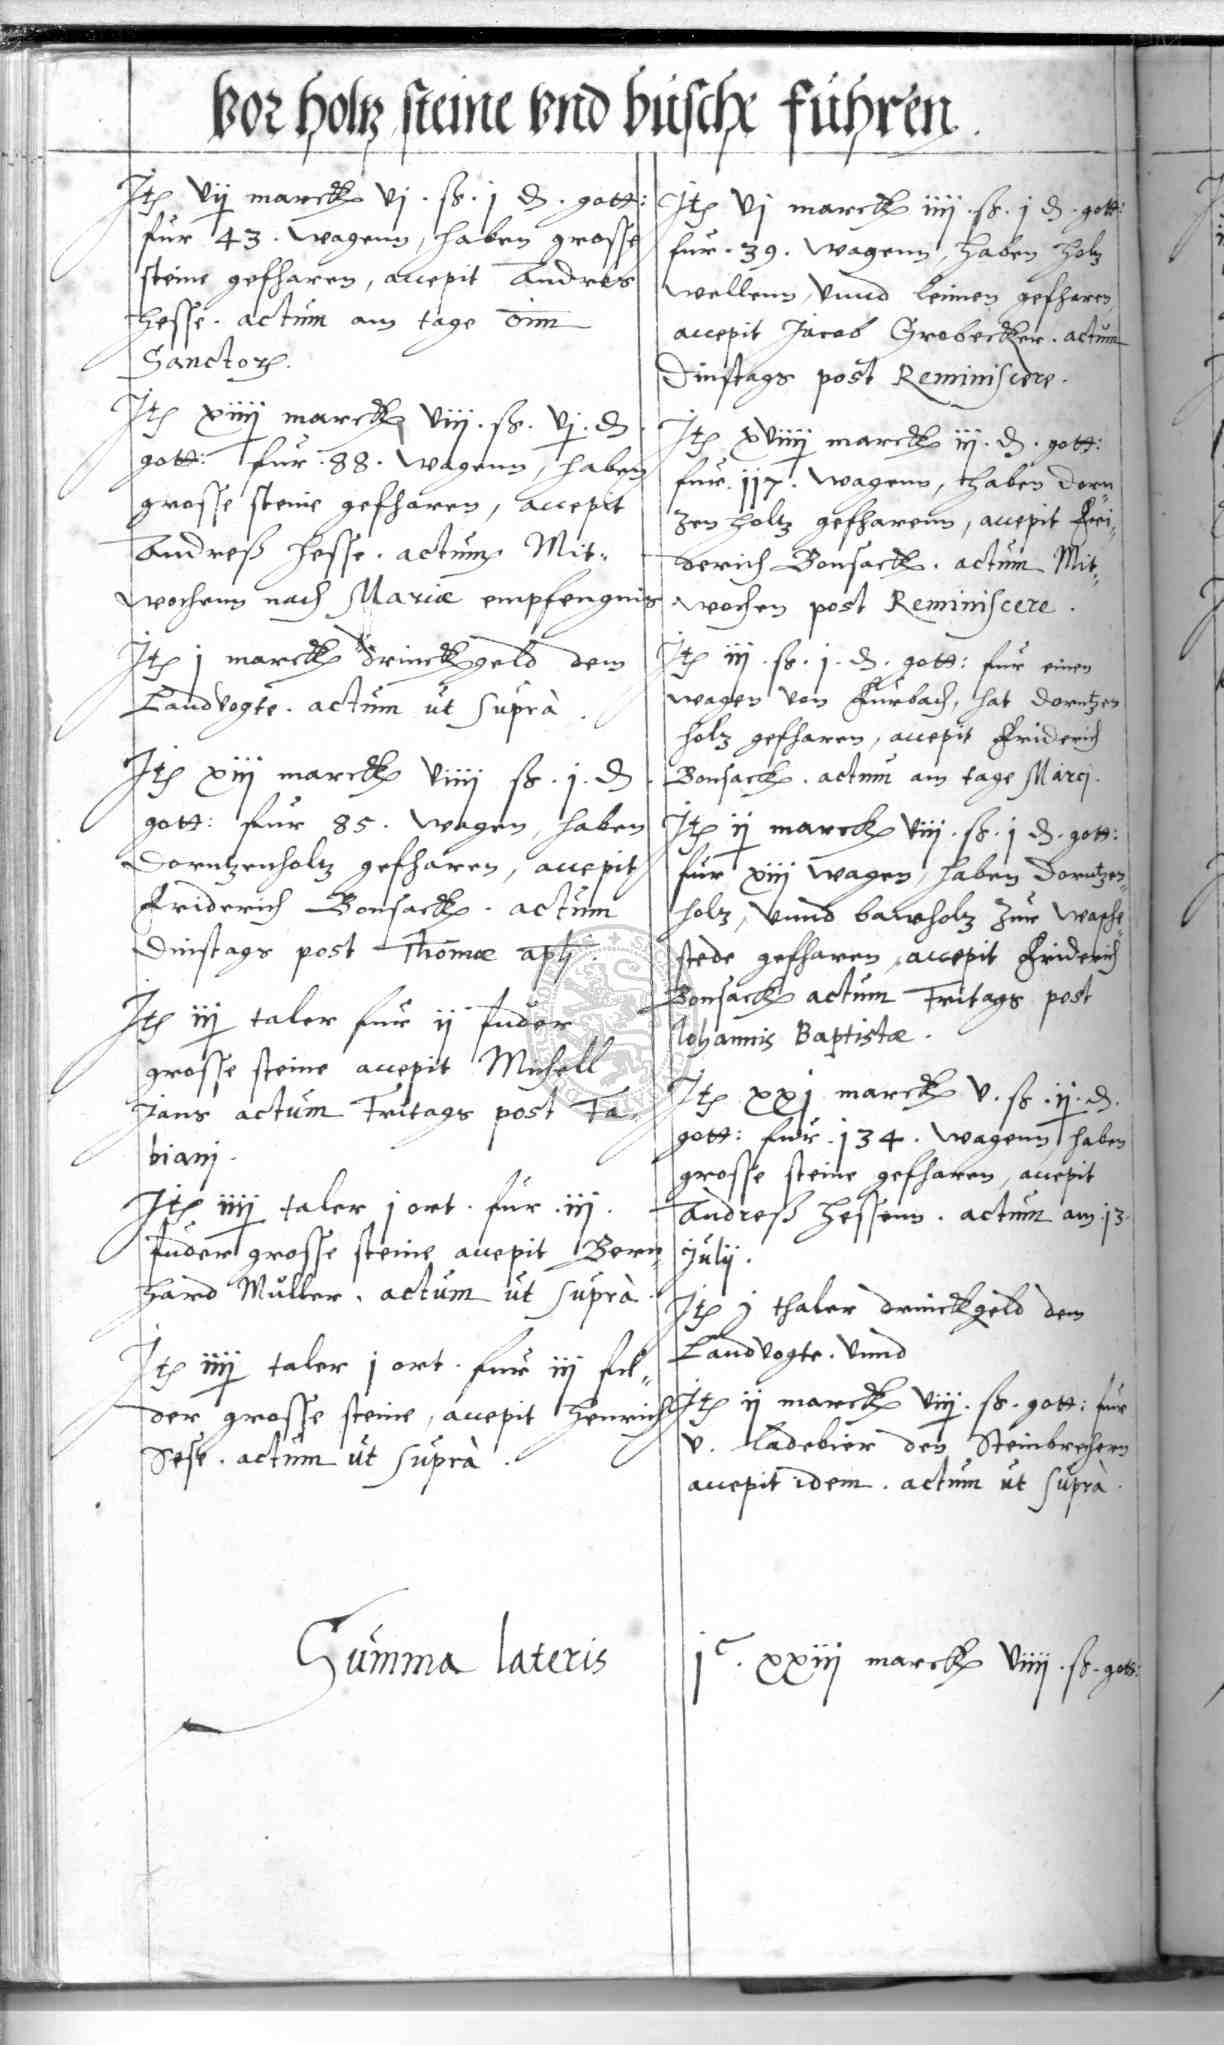 Vor holtz steine Vnd büsche führen.
Jtem vij marck vj. ß. j d. gott:
für 43. wagenn, haben grosse
steine gefharen, accepit Andres
Hesse. actum am tage oim
Sanctorum.
Jtem xiiij marck viij. ß. vj. d
gott: für .88. wagenn, haben
grosse steine gefharen, accepit
Andreß Hesse. actum Mit-
wochenn nach Mariæ empfengnis
Jtem j marck drinckgeld dem
Landvogte. actum ut suprà.
Jtem xiij marck viiij ß. j. d.
gott: für 85. wagen, haben
Dorntzenholtz gefharen, accepit
Friderich Bonsack. actum
Dinstags post Thomæ apli.
Jtem iij taler für ij fuder
grosse steine accepit Michell
Jans actum Fritags post Fa
biani.
Jtem iiij taler j ort. für .iij.
fuder grosse steine accepit Bern-
hard Müller. actum ut suprà.
Jtem iiij taler j ort. für iij fu-
der grosse steine, accepit Henrich
Sese. actum ut suprà.
Jtem vj marck iiij. ß. j d. gott:
für .39. wagenn, haben holz
wellenn, vnnd leimen gefharen
accepit Jacob Grobecker. actum
Dinstags post Reminiscere.
Jtem xviiij marck iij. d. gott:
für .117. wagenn, haben Dorn-
zen holtz gefharenn, accepit Fri-
derich Bonsack. actum Mit-
wochen post Reminiscere.
Jtem iij. ß. j. d. gott: für einen
wagen von Furbach, hat Dorntzen
holz gefharen, accepit Friderich
Bonsack. actum am tage Marci.
Jtem ij marck viij. ß. j d. gott:
für xiij wagen, haben Dorntzen-
holz, vnnd bawholz zur
stede gefharen, accepit Friderich
Bonsack actum Fritags post
Johannis Baptistæ.
Jtem xxj marck v. ß. ij. d.
gott: für .134. wagenn, haben
grosse steine gefharen, accepit
Andreß Hessenn. actum am .13.
Julij.
Jtem j thaler drinckgeld dem
Landvogte. vnnd
Jtem ij marck viij. ß. gott: für
v. ladebier den Steinbrechern
accepit idem. actum ut suprà.
Summa lateris jc. xxiij marck viiij. ß. gott: